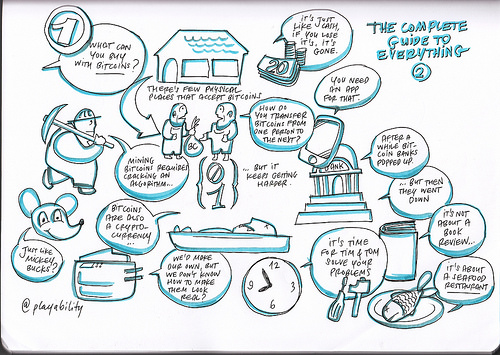 THE COMPLETE
GUIDE TO
EVERYTHING
2
1
WHAT CAN
YOU BUY
WITH BITCOINS?
THERE'S FEW PHYSICAL
PLACES THAT ACCEPT BITCOINS
IT'S JUST
LIKE CASH,
IF YOU LOSE
IT'S, IT'S
GONE.
20
YOU NEED
AN APP
FOR THAT.
HOW DO
YOU TRANSFER
BITCOINS FROM
ONE PERSON TO
THE NEXT?
BC
MINING
BITCOINS REQUIRES
CRACKING AN
ALGORITHM...
0
1
... BUT IT
KEEPS GETTING
HARDER.
BANK
AFTER A
WHILE BIT-
COIN BANKS
POPPED UP.
... BUT THEN
THEY WENT
DOWN
BITCOINS
ARE ALSO
A CRYPTO-
CURRENCY
...
JUST LIKE
MICKEY
BUCKS?
WE'D MAKE
OUR OWN, BUT
WE DON'T KNOW
HOW TO MAKE
THEM LOOK
REAL?
12
9
3
6
IT'S TIME
FOR TIM & TOM
SOLVE YOUR
PROBLEMS
IT'S NOT
ABOUT A
BOOK
REVIEW...
IT'S ABOUT
A SEAFOOD
RESTAURANT
@playability